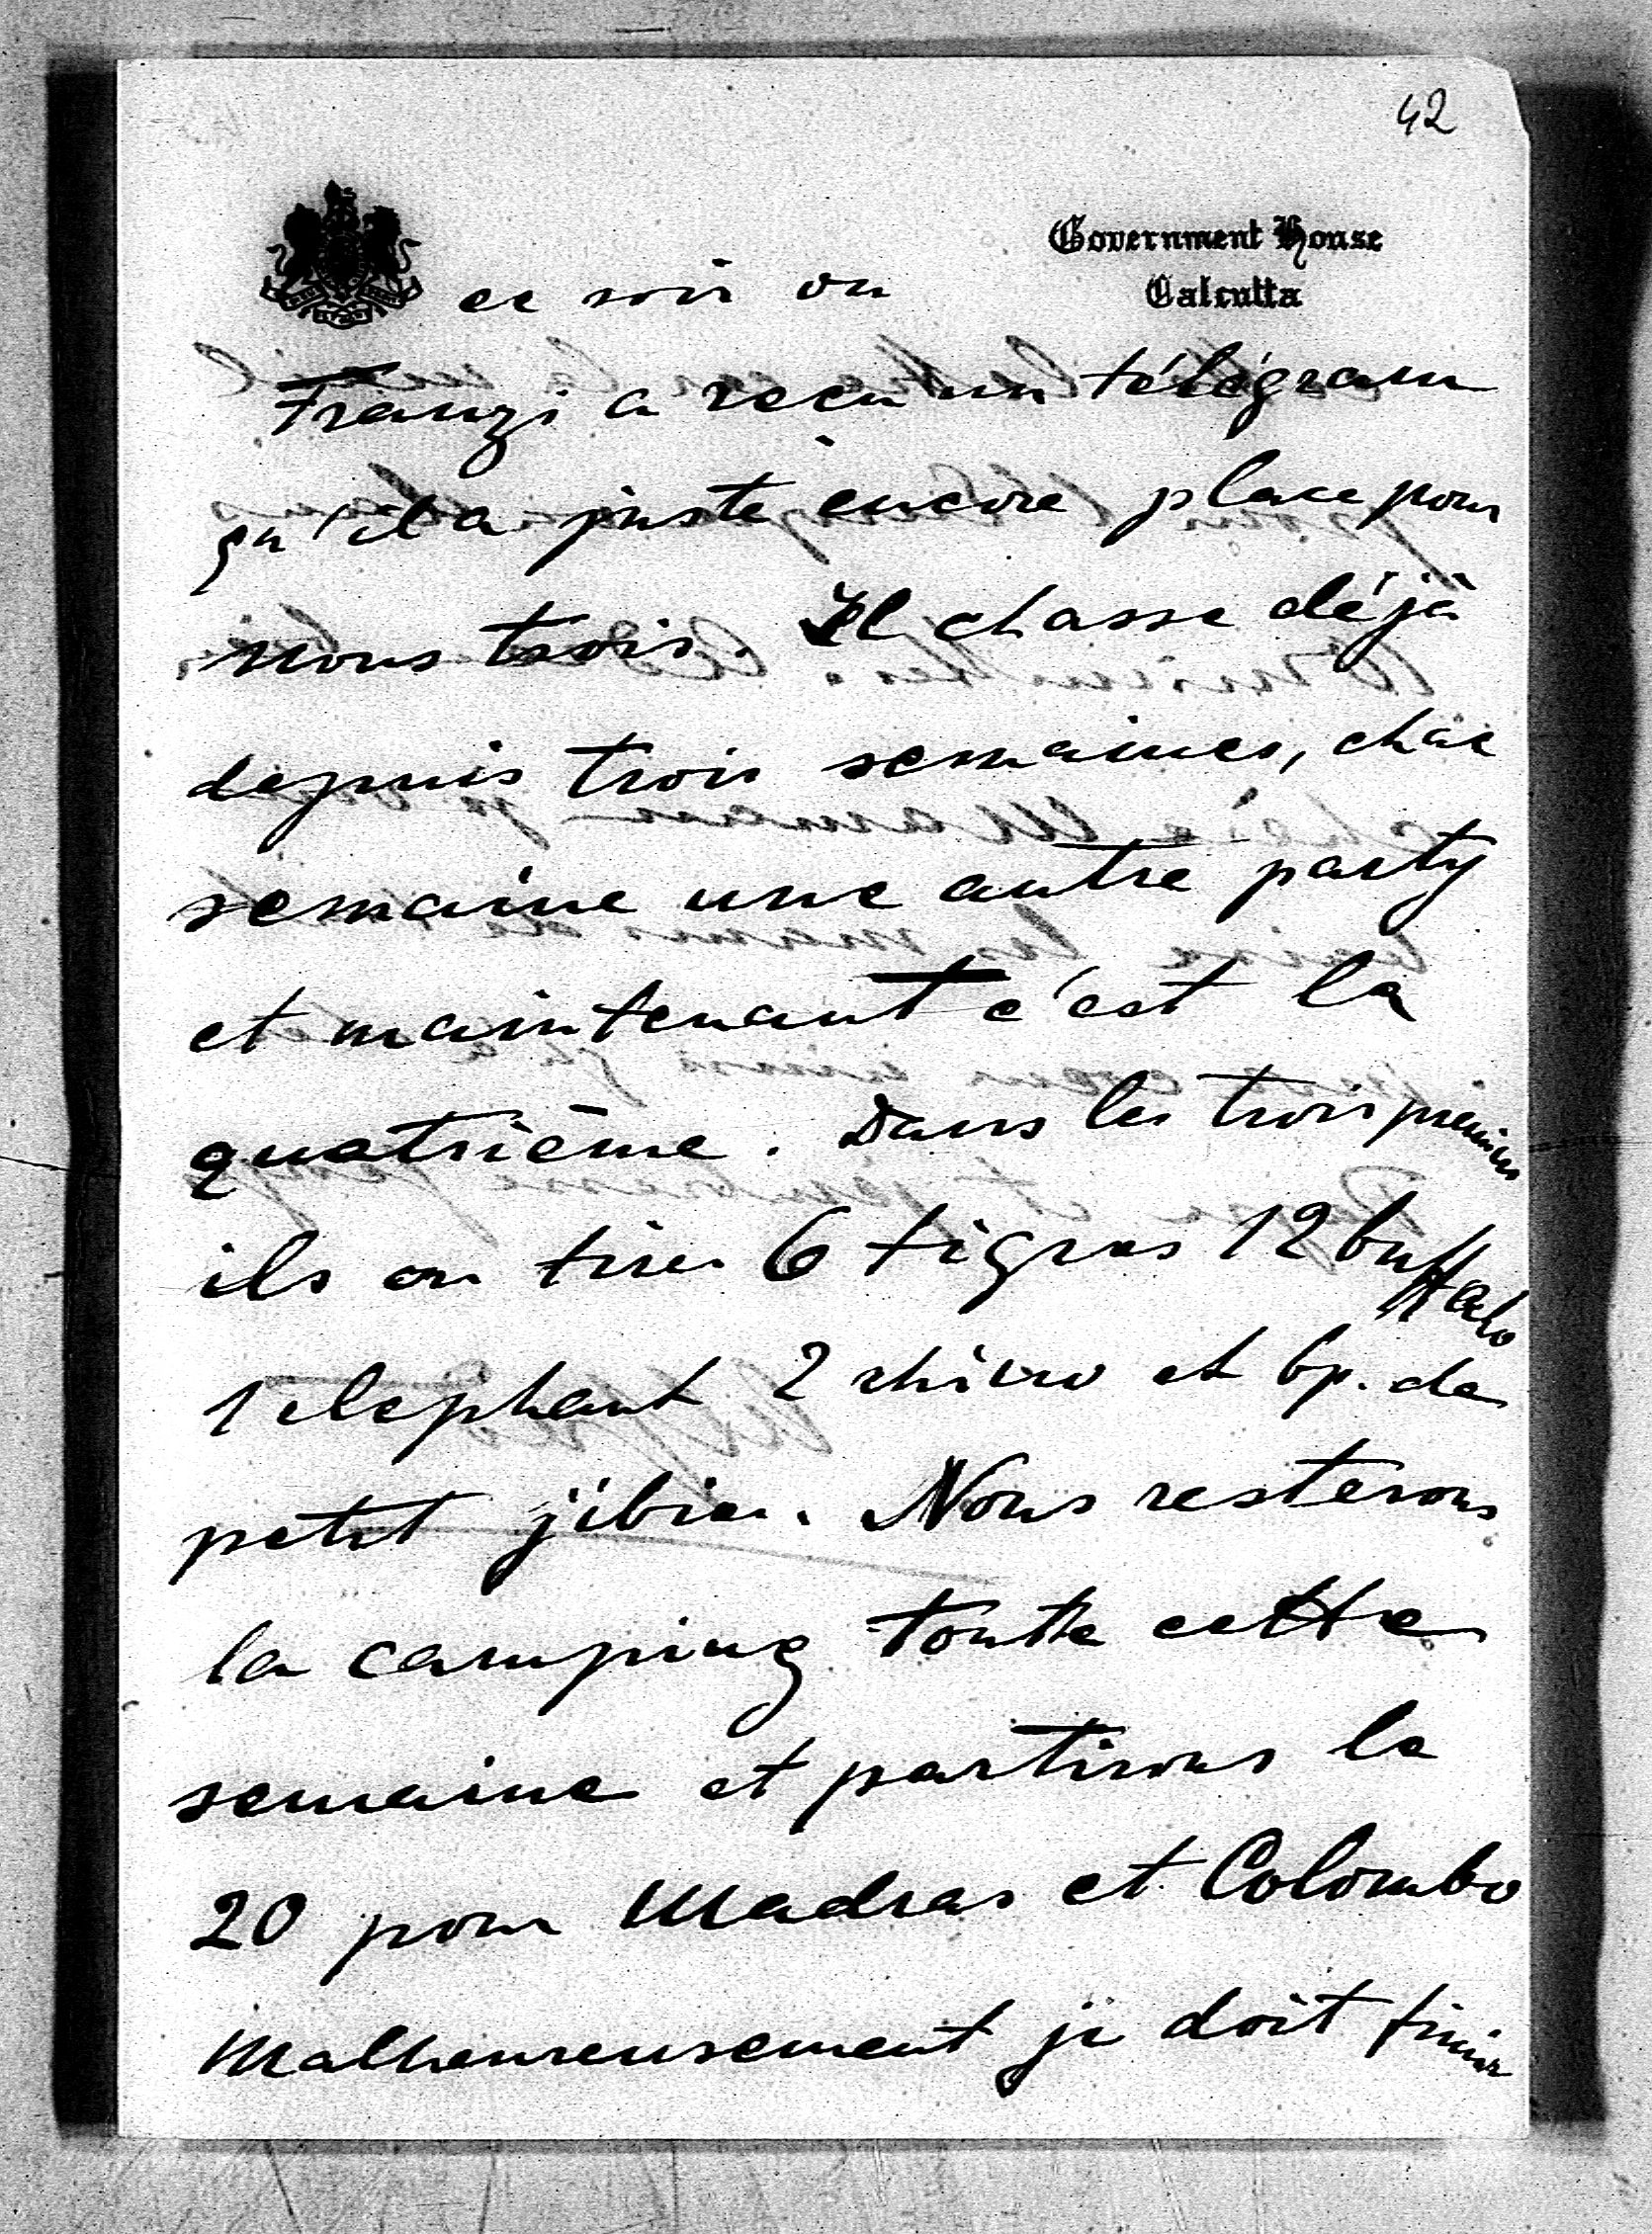 42
Government House
Calcutta
ce soir on
Franzi a reçu un télégram
qu'il a juste encore place pour
nous trois. Il chasse déjà
depuis trois semaines, chac
semaine une autre party
et maintenant c'est la
quatrième. Dans les trois premiers
ils on tirer 6 tigres 12 buffalo
1 elephant 2 rhino et bp. de
petit jibier. Nous resterons
la camping toutte cette
semaine et partirons le
20 pour Madras et Colombo
Malheureusement je doit finir